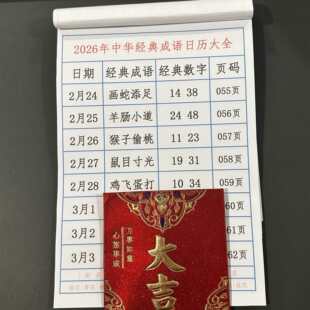 2026年中华经典成语日历大全
日期 经典成语 经典数字 页码
2月24 画蛇添足 14 38 055页
2月25 羊肠小道 24 48 056页
2月26 猴子偷桃 11 23 057页
2月27 鼠目寸光 19 31 058页
2月28 鸡飞蛋打 10 34 059页
3月1 60页
3月2 61页
3月3 62页
万事如意
心想事成
大吉